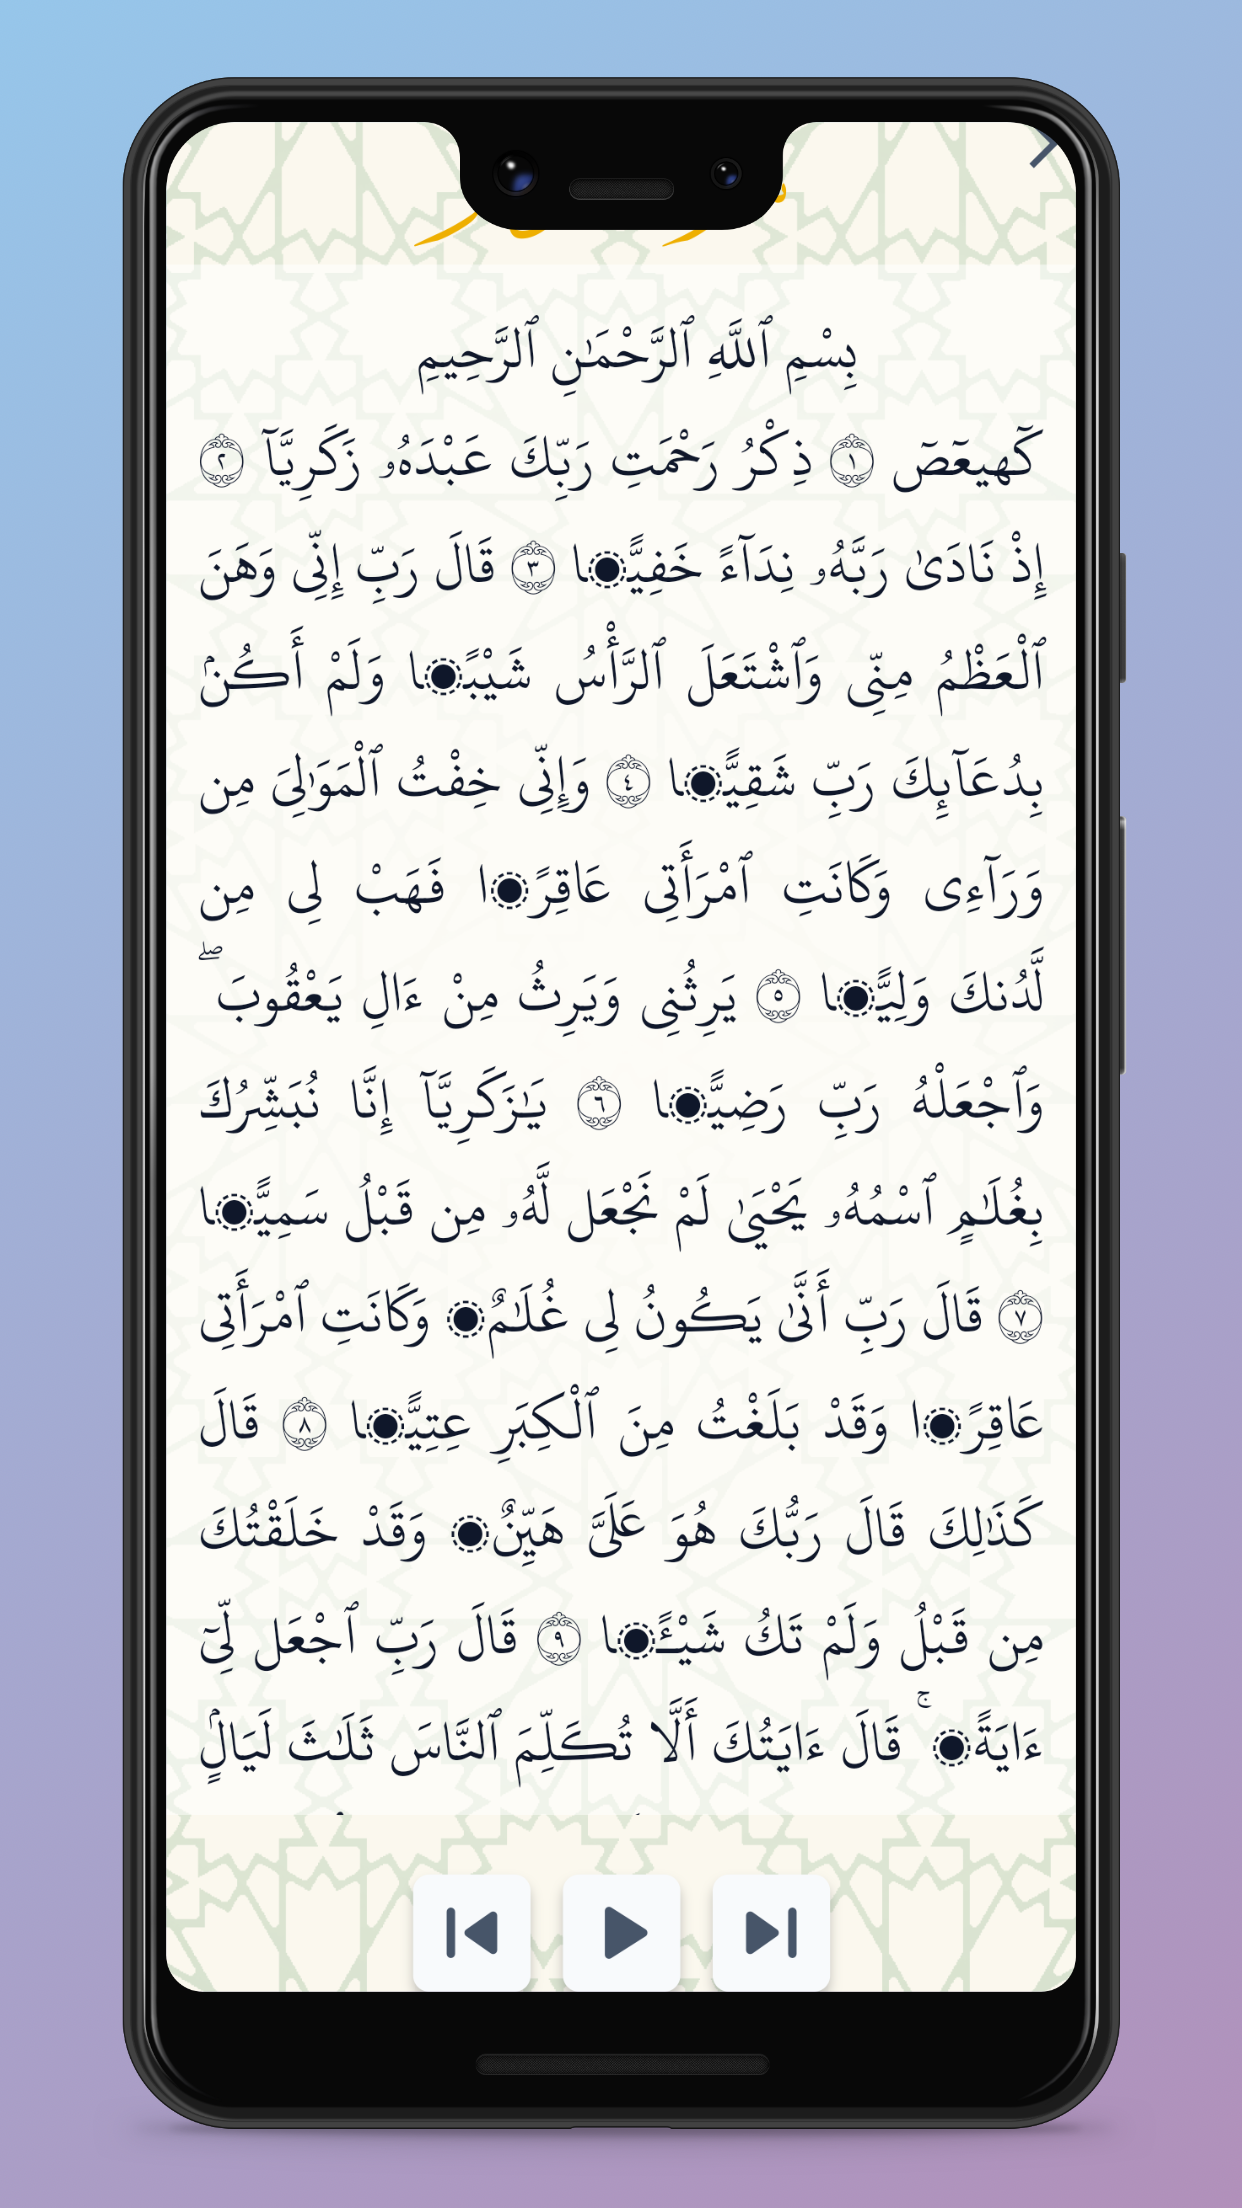 بِسْمِ ٱللَّهِ ٱلرَّحْمَـٰنِ ٱلرَّحِيمِ
كٓهيعٓصٓ ١ ذِكْرُ رَحْمَتِ رَبِّكَ عَبْدَهُۥ زَكَرِيَّآ ٢
إِذْ نَادَىٰ رَبَّهُۥ نِدَآءً خَفِيًّا ٣ قَالَ رَبِّ إِنِّى وَهَنَ
ٱلْعَظْمُ مِنِّى وَٱشْتَعَلَ ٱلرَّأْسُ شَيْبًا وَلَمْ أَكُنۢ
بِدُعَآئِكَ رَبِّ شَقِيًّا ٤ وَإِنِّى خِفْتُ ٱلْمَوَٰلِىَ مِن
وَرَآءِى وَكَانَتِ ٱمْرَأَتِى عَاقِرًا فَهَبْ لِى مِن
لَّدُنكَ وَلِيًّا ٥ يَرِثُنِى وَيَرِثُ مِنْ ءَالِ يَعْقُوبَ ۖ
وَٱجْعَلْهُ رَبِّ رَضِيًّا ٦ يَـٰزَكَرِيَّآ إِنَّا نُبَشِّرُكَ
بِغُلَـٰمٍ ٱسْمُهُۥ يَحْيَىٰ لَمْ نَجْعَل لَّهُۥ مِن قَبْلُ سَمِيًّا
٧ قَالَ رَبِّ أَنَّىٰ يَكُونُ لِى غُلَـٰمٌ وَكَانَتِ ٱمْرَأَتِى
عَاقِرًا وَقَدْ بَلَغْتُ مِنَ ٱلْكِبَرِ عِتِيًّا ٨ قَالَ
كَذَٰلِكَ قَالَ رَبُّكَ هُوَ عَلَىَّ هَيِّنٌ وَقَدْ خَلَقْتُكَ
مِن قَبْلُ وَلَمْ تَكُ شَيْـًٔا ٩ قَالَ رَبِّ ٱجْعَل لِّىٓ
ءَايَةً ۚ قَالَ ءَايَتُكَ أَلَّا تُكَلِّمَ ٱلنَّاسَ ثَلَـٰثَ لَيَالٍۢ